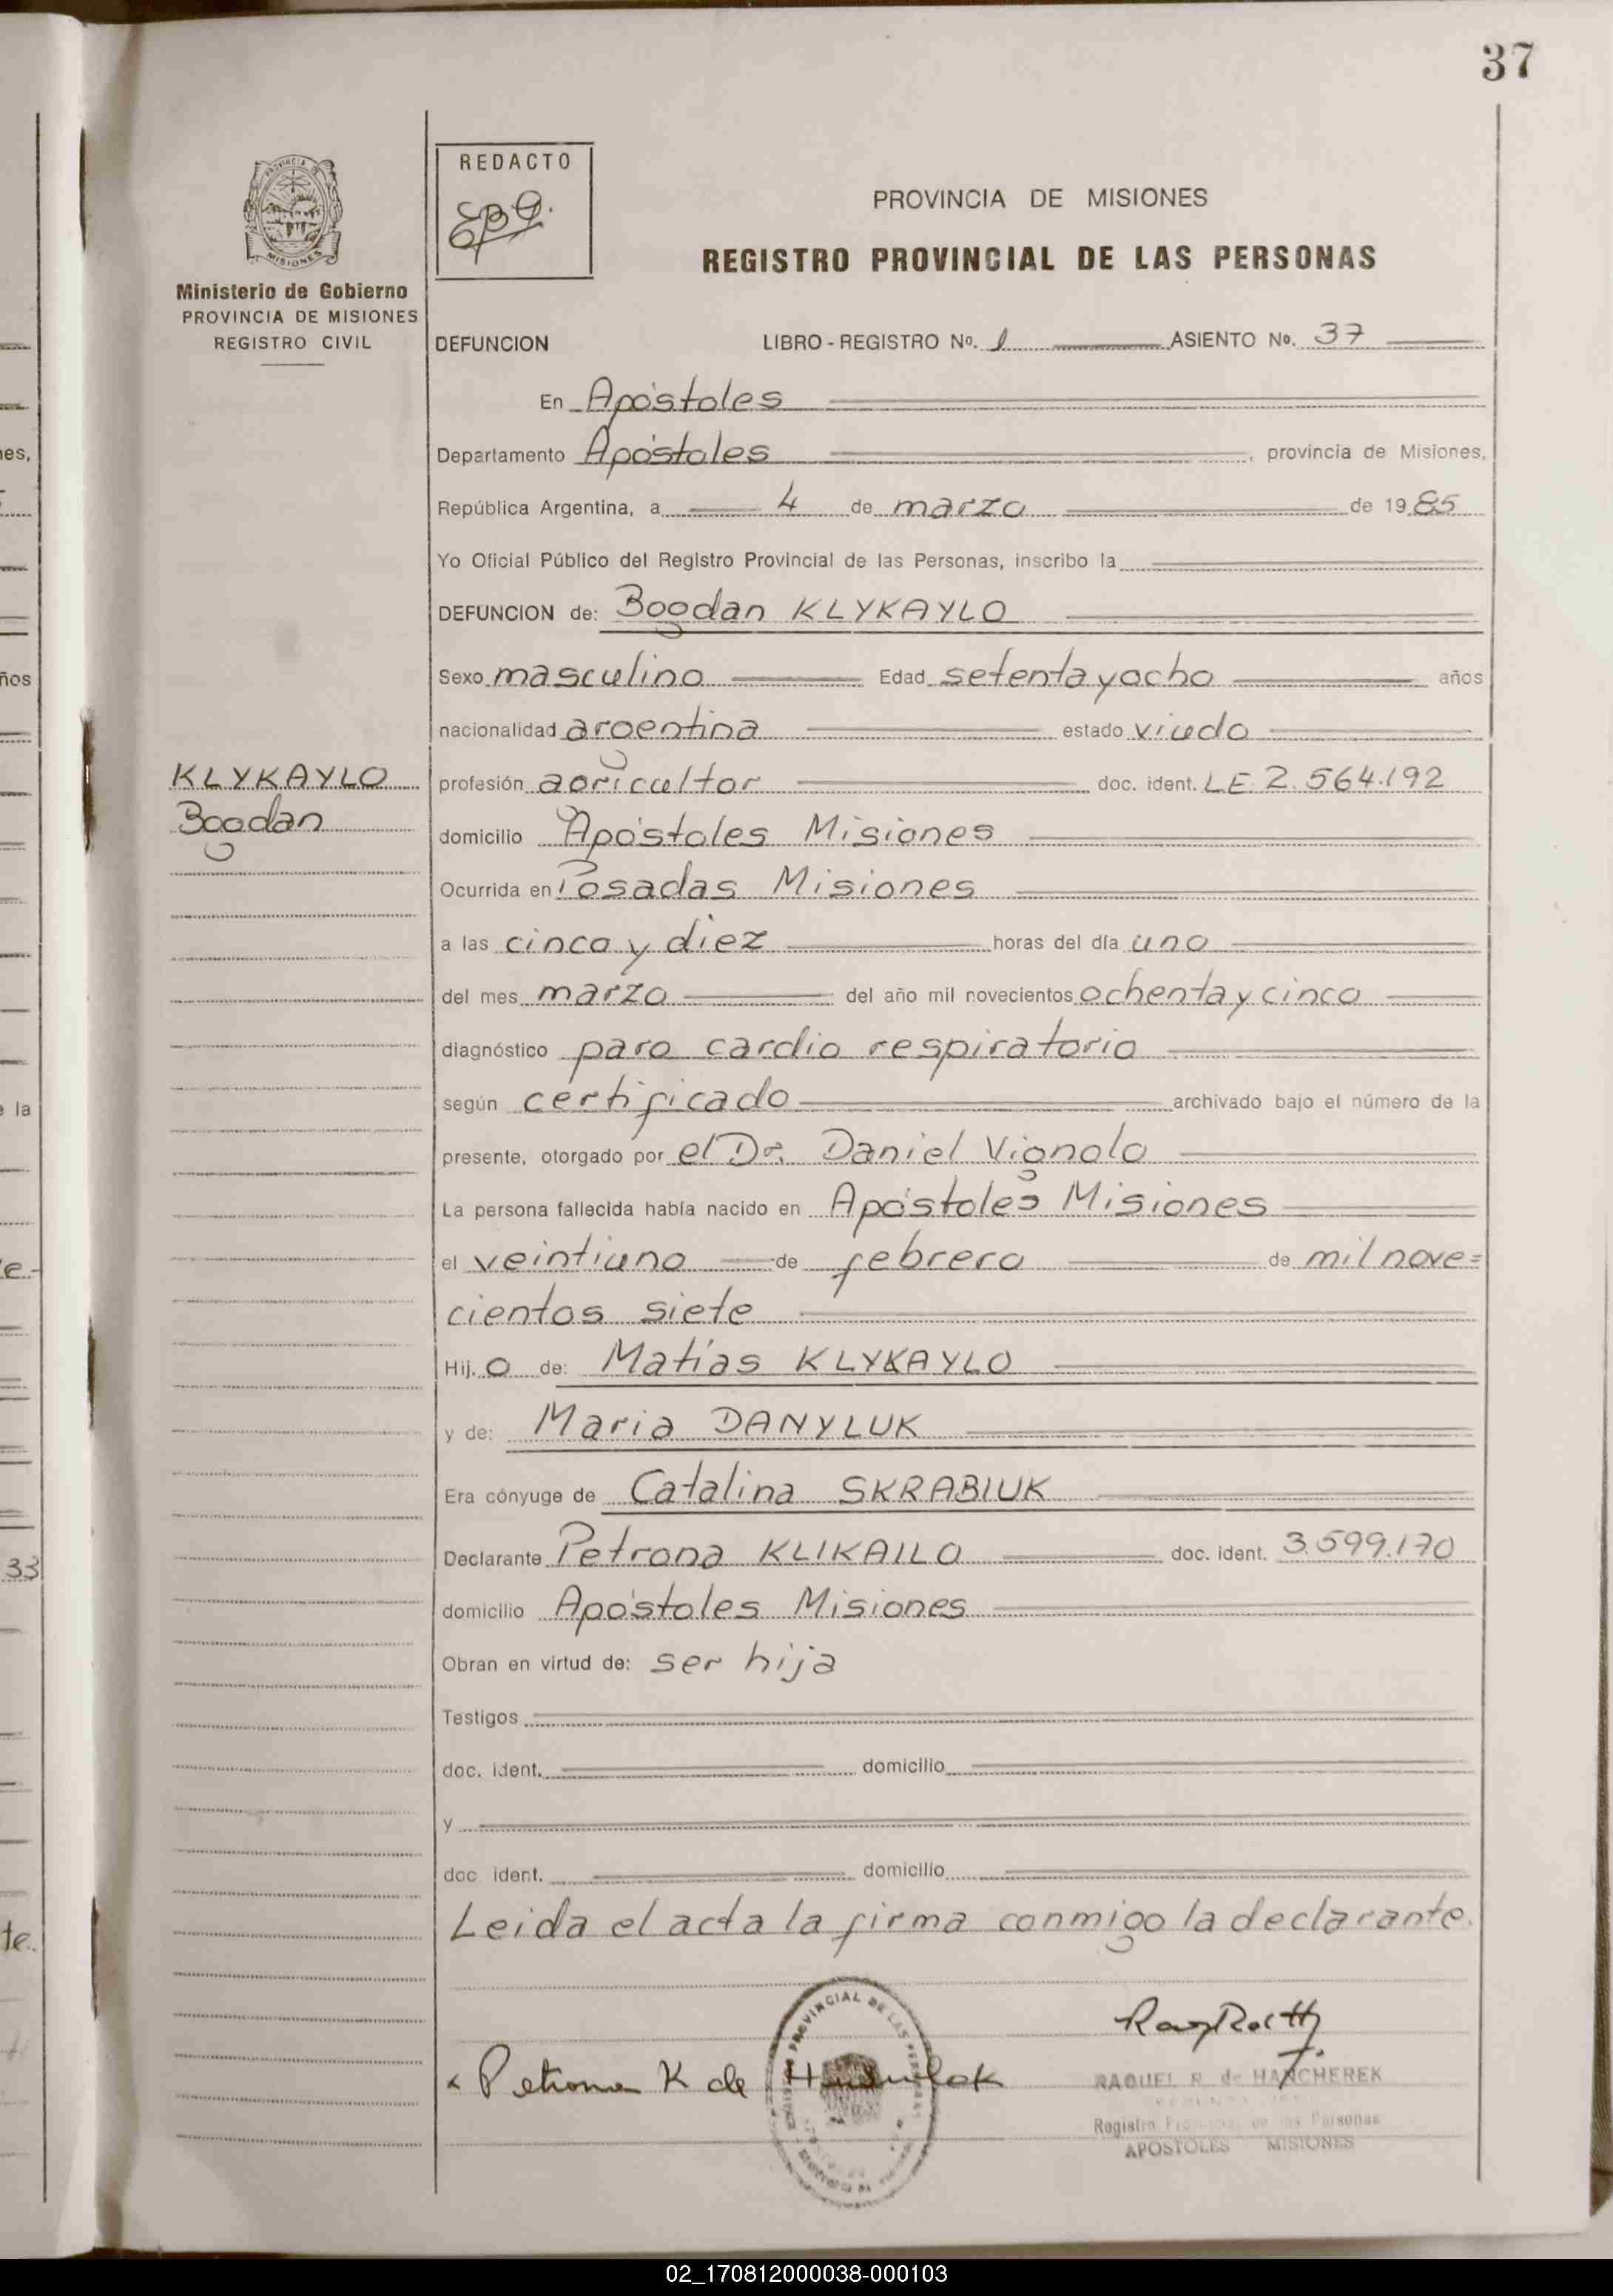 37
PROVINCIA DE
MISIONES
Ministerio de Gobierno
PROVINCIA DE MISIONES
REGISTRO CIVIL
REDACTO
PROVINCIA DE MISIONES
REGISTRO PROVINCIAL DE LAS PERSONAS
DEFUNCION LIBRO - REGISTRO No. 1 ASIENTO No. 37
En Apóstoles
Departamento Apóstoles, provincia de Misiones,
República Argentina, a 4 de marzo de 1985
Yo Oficial Público del Registro Provincial de las Personas, inscribo la
DEFUNCION de: Bogdan KLYKAYLO
Sexo masculino Edad setenta y ocho años
nacionalidad argentina estado viudo
KLYKAYLO
Bogdan
profesión agricultor doc. ident. LE. 2.564.192
domicilio Apóstoles Misiones
Ocurrida en Posadas Misiones
a las cinco y diez horas del día uno
del mes marzo del año mil novecientos ochenta y cinco
diagnóstico paro cardio respiratorio
según certificado archivado bajo el número de la
presente, otorgado por el Dr. Daniel Vignolo
La persona fallecida había nacido en Apóstoles Misiones
el veintiuno de febrero de mil nove=
cientos siete
Hij.o de: Matías KLYKAYLO
y de: Maria DANYLUK
Era cónyuge de Catalina SKRABIUK
Declarante Petrona KLIKAILO doc. ident. 3.599.170
domicilio Apóstoles Misiones
Obran en virtud de: ser hija
Testigos
doc. ident. domicilio
y
doc. ident. domicilio
Leida el acta la firma conmigo la declarante.
Petrona K de
RAQUEL R. de HANCHEREK
Registro Provincial de las Personas
APOSTOLES MISIONES
nes,
ños
e la
e-
33
te.
02_170812000038-000103